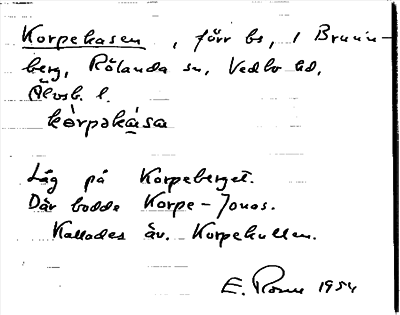 Korpekasen, förr bs, i Brunn-
berg, Rölanda sn, Vedbo hd,
Älvsb. l.
kòrpəkàsa
Låg på Korpeberget.
Där bodde Korpe-Jonas.
Kallades äv. Korpekullen.
E. 1954